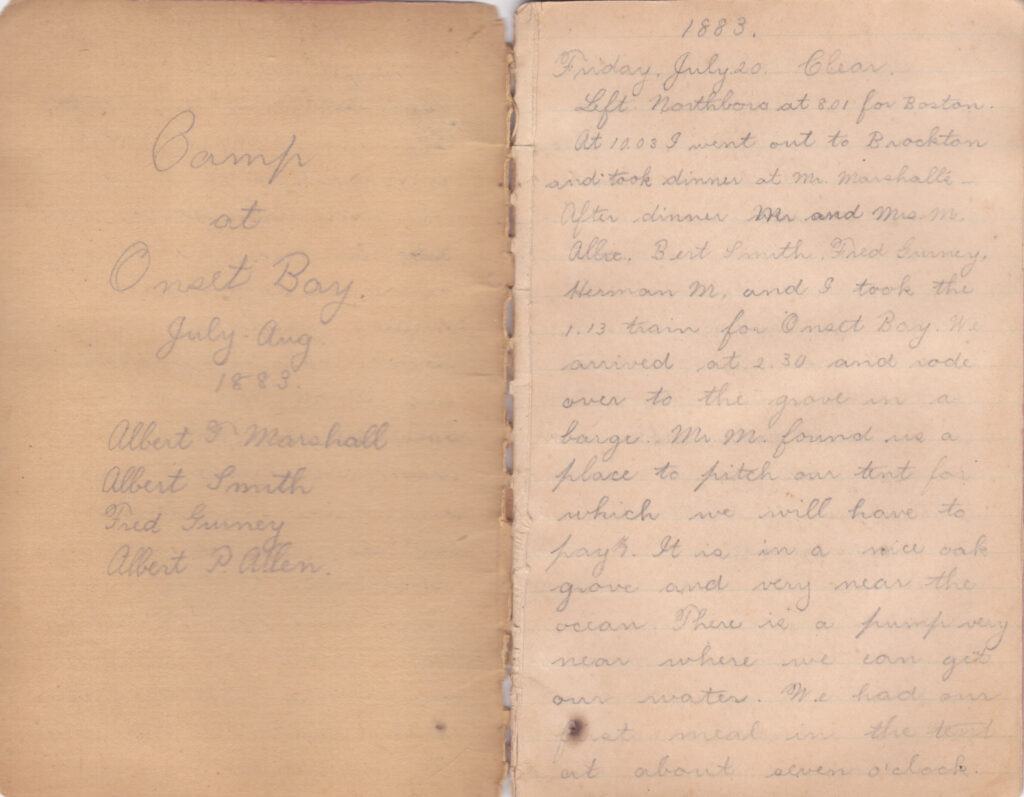 Camp
at
Onset Bay.
July-Aug
1883.
Albert F. Marshall
Albert Smith
Fred Gurney
Albert P. Allen.
1883.
Friday, July 20. Clear.
Left Northboro at 8.01 for Boston.
At 10.03 I went out to Brockton
and took dinner at Mr. Marshalls
After dinner Mr and Mrs. M.
Allie, Bert Smith, Fred Gurney,
Herman M, and I took the
1.13 train for Onset Bay. We
arrived at 2.30 and rode
over to the grove in a
barge. Mr M. found us a
place to pitch our tent for
which we will have to
pay. It is in a nice oak
grove and very near the
ocean. There is a pump very
near where we can get
our water. We had our
first meal in the tent
at about seven o'clock.